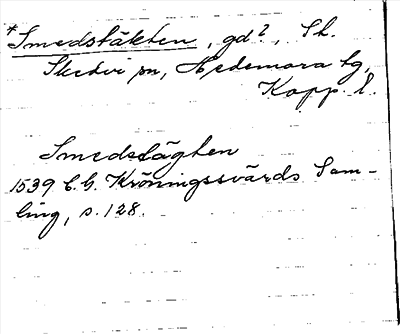 *Smedstäkten, gd?, St.
Skedvi sn, Hedemora tg,
Kopp. l.
Smedstägten
1539 C.G. Kröningssvärds Sam-
ling, s. 128.